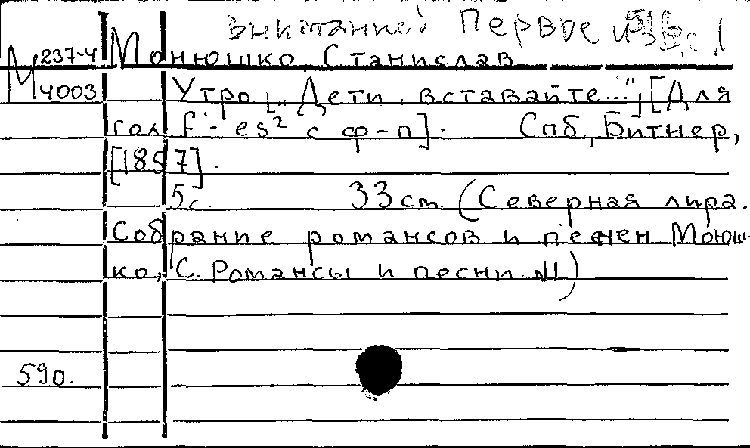 внимание! Первое изд.!
М 237-4 Монюшко Станислав
М 4003 Утро [„Дети, вставайте..."; [Для
гол f'-es² с ф-п]. Спб, Битнер,
[1857].
5с. 33 cm (Северная лира.
Собрание романсов и песнен Моюш-
ко, С. Романсы и песни. №1)
590.